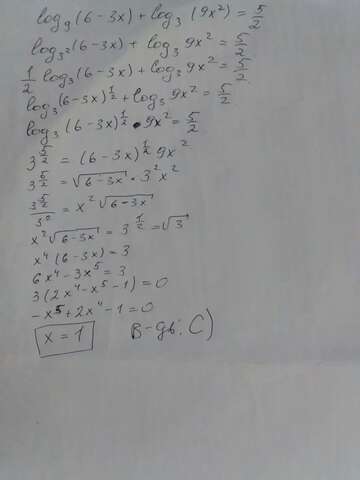 log₉(6-3x) + log₃(9x²) = 5/2
log₃²(6-3x) + log₃ 9x² = 5/2
1/2 log₃(6-3x) + log₃ 9x² = 5/2
log₃(6-3x)^(1/2) + log₃ 9x² = 5/2
log₃ (6-3x)^(1/2) • 9x² = 5/2
3^(5/2) = (6-3x)^(1/2) 9x²
3^(5/2) = √(6-3x) • 3² x²
3^(5/2)/3² = x² √(6-3x)
x² √(6-3x) = 3^(1/2) = √3
x⁴ (6-3x) = 3
6x⁴ - 3x⁵ = 3
3(2x⁴ - x⁵ - 1) = 0
-x⁵ + 2x⁴ - 1 = 0
x = 1 В-дь: C)